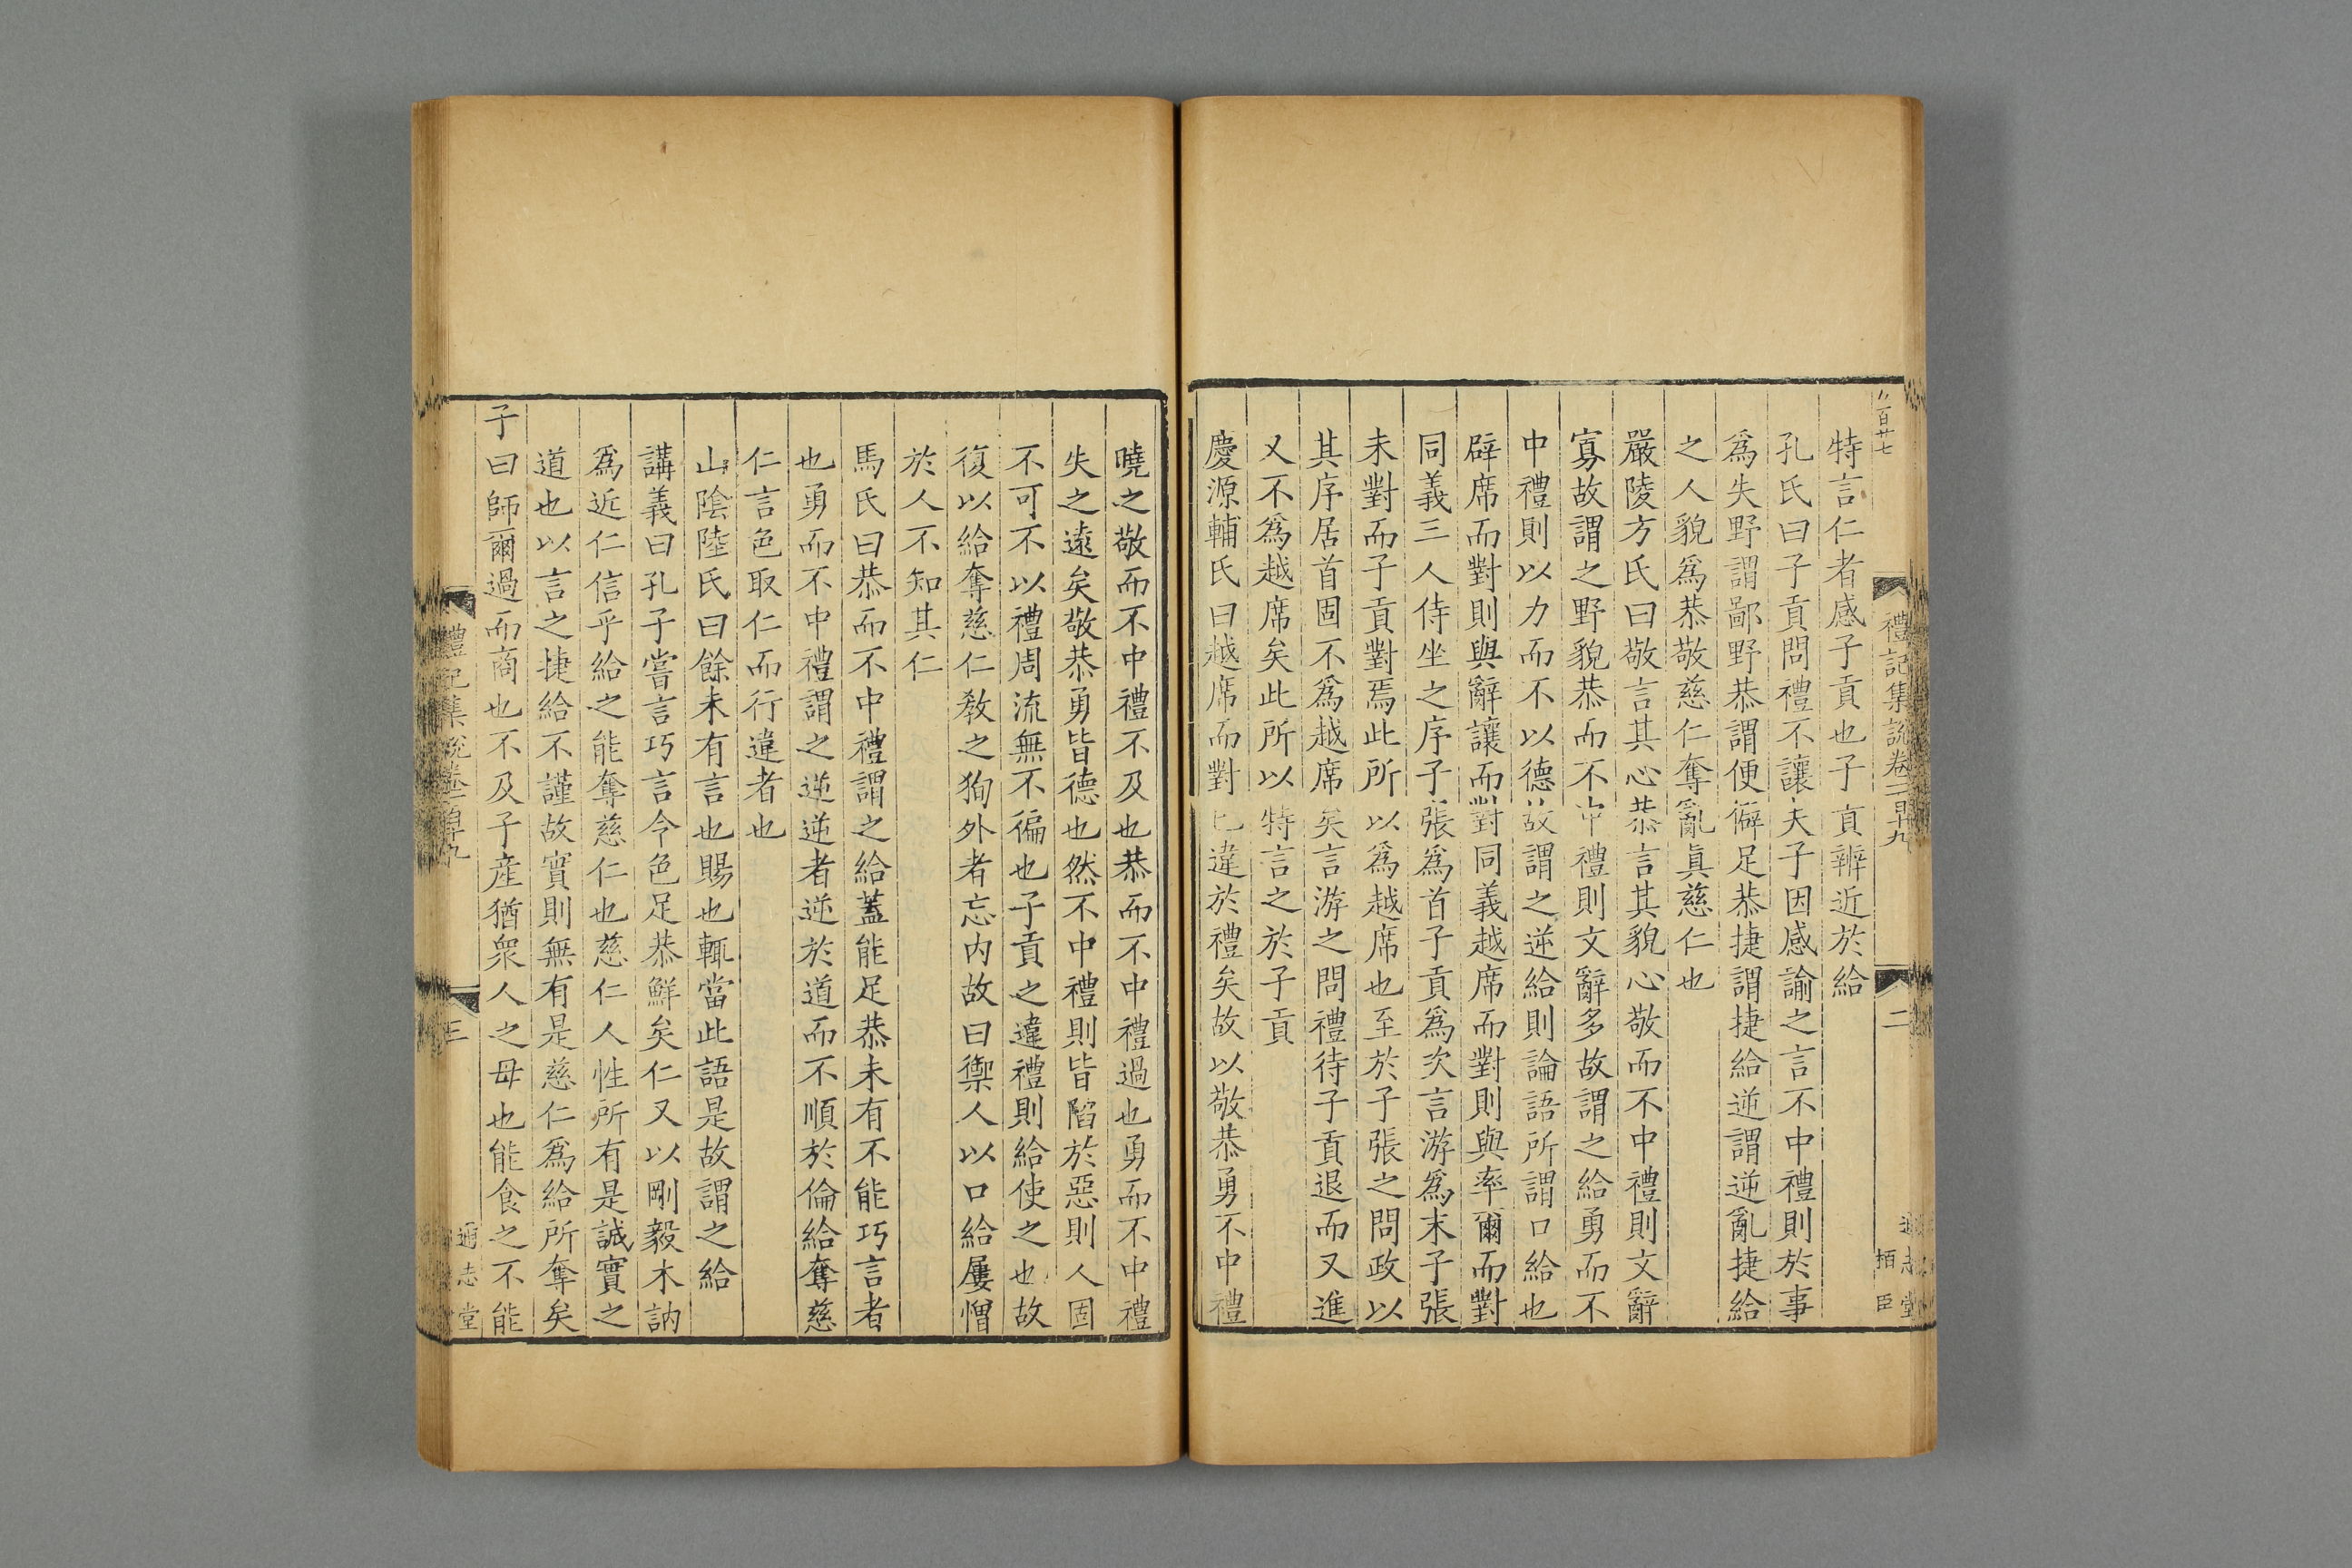 二百廿七
禮記集説卷一百十九
二
通志堂
栢臣
特言仁者感子貢也子貢辨近於給
孔氏曰子貢問禮不讓夫子因感諭之言不中禮則於事
爲失野謂鄙野恭謂便僻足恭捷謂捷給逆謂逆亂捷給
之人貌爲恭敬慈仁奪亂真慈仁也
嚴陵方氏曰敬言其心恭言其貌心敬而不中禮則文辭
寡故謂之野貌恭而不中禮則文辭多故謂之給勇而不
中禮則以力而不以德故謂之逆給則論語所謂口給也
辟席而對則與辭讓而對同義越席而對則與率爾而對
同義三人侍坐之序子張爲首子貢爲次言游爲末子張
未對而子貢對焉此所以爲越席也至於子張之問政以
其序居首固不爲越席矣言游之問禮待子貢退而又進
又不爲越席矣此所以特言之於子貢
慶源輔氏曰越席而對已違於禮矣故以敬恭勇不中禮
曉之敬而不中禮不及也恭而不中禮過也勇而不中禮
失之遠矣敬恭勇皆德也然不中禮則皆陷於惡則人固
不可不以禮周流無不徧也子貢之違禮則給使之也故
復以給奪慈仁敎之狥外者忘内故曰禦人以口給屢憎
於人不知其仁
馬氏曰恭而不中禮謂之給蓋能足恭未有不能巧言者
也勇而不中禮謂之逆逆者逆於道而不順於倫給奪慈
仁言色取仁而行違者也
山陰陸氏曰餘未有言也賜也輒當此語是故謂之給
講義曰孔子嘗言巧言令色足恭鮮矣仁又以剛毅木訥
爲近仁信乎給之能奪慈仁也慈仁人性所有是誠實之
道也以言之捷給不謹故實則無有是慈仁爲給所奪矣
子曰師爾過而商也不及子産猶衆人之母也能食之不能
禮記集説卷一百十九
三
通志堂